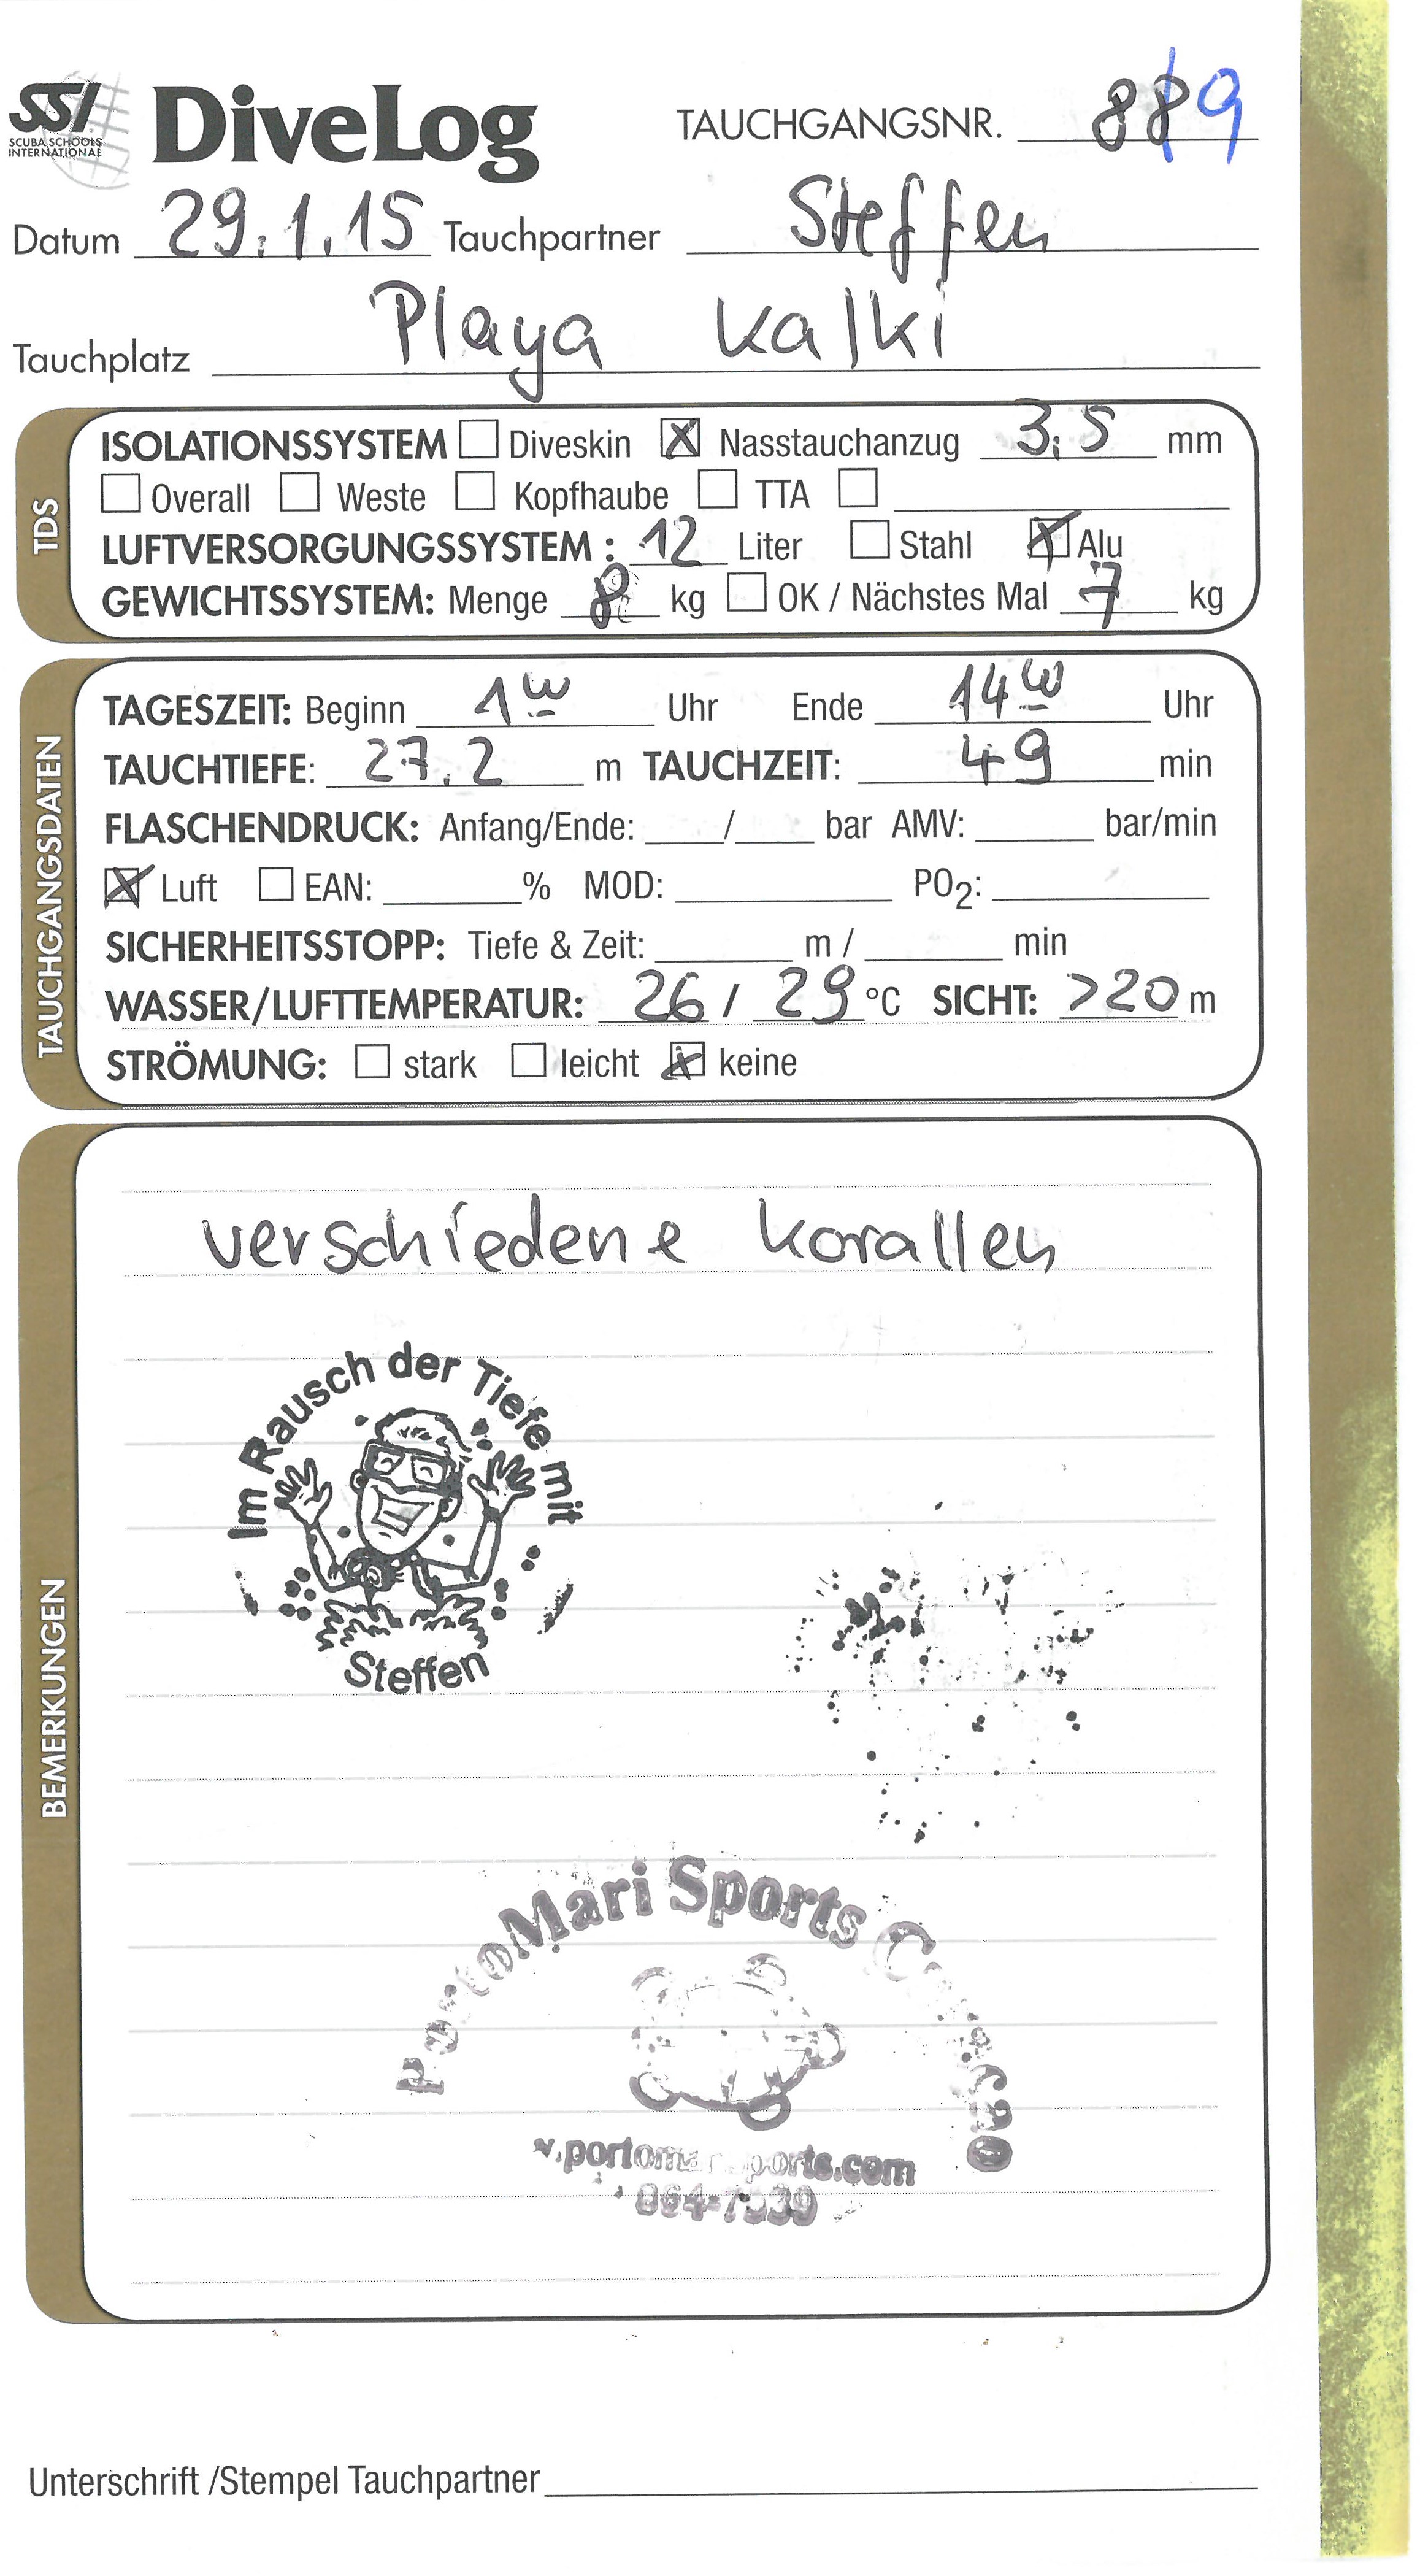 SSI
SCUBA SCHOOLS
INTERNATIONAL
DiveLog
TAUCHGANGSNR. 889
Datum 29.1.15 Tauchpartner Steffen
Tauchplatz Playa Kalki
TDS
ISOLATIONSSYSTEM Diveskin Nasstauchanzug 3,5 mm
Overall Weste Kopfhaube TTA
LUFTVERSORGUNGSSYSTEM: 12 Liter Stahl Alu
GEWICHTSSYSTEM: Menge 8 kg OK / Nächstes Mal 7 kg
TAUCHGANGSDATEN
TAGESZEIT: Beginn Uhr Ende 14 Uhr
TAUCHTIEFE: 27.2 m TAUCHZEIT: 49 min
FLASCHENDRUCK: Anfang/Ende: / bar AMV: bar/min
Luft EAN: % MOD: PO2:
SICHERHEITSSTOPP: Tiefe & Zeit: m / min
WASSER/LUFTTEMPERATUR: 26 / 29 °C SICHT: >20 m
STRÖMUNG: stark leicht keine
BEMERKUNGEN
verschiedene Korallen
Im Rausch der Tiefe mit
Steffen
PortoMari Sports Curacao
864-7539
Unterschrift /Stempel Tauchpartner